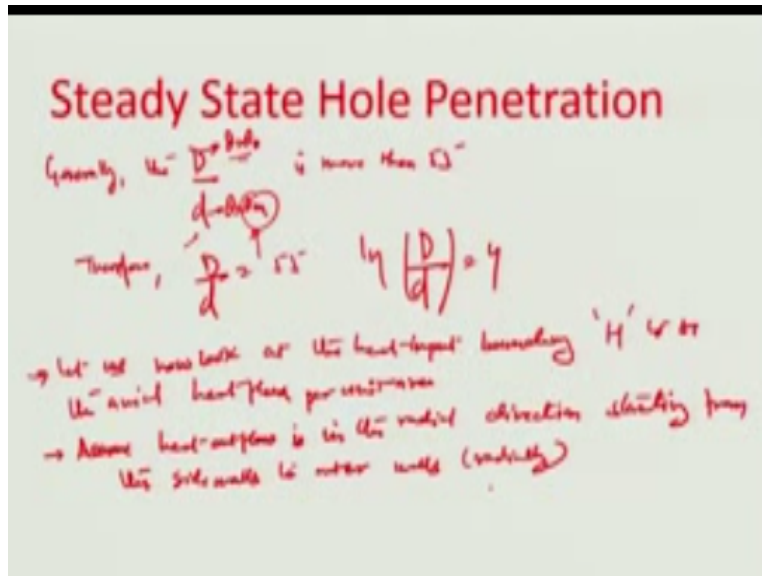 Steady State Hole Penetration
Generally, the D is more than 55
d
Therefore, D/d = 55 ln (D/d) = 4
→ Let us now look at the heat-input boundary 'H' is
the axial heat flux per unit area
→ Assume heat-outflow is in the radial direction starting from
the side walls to outer walls (radially)